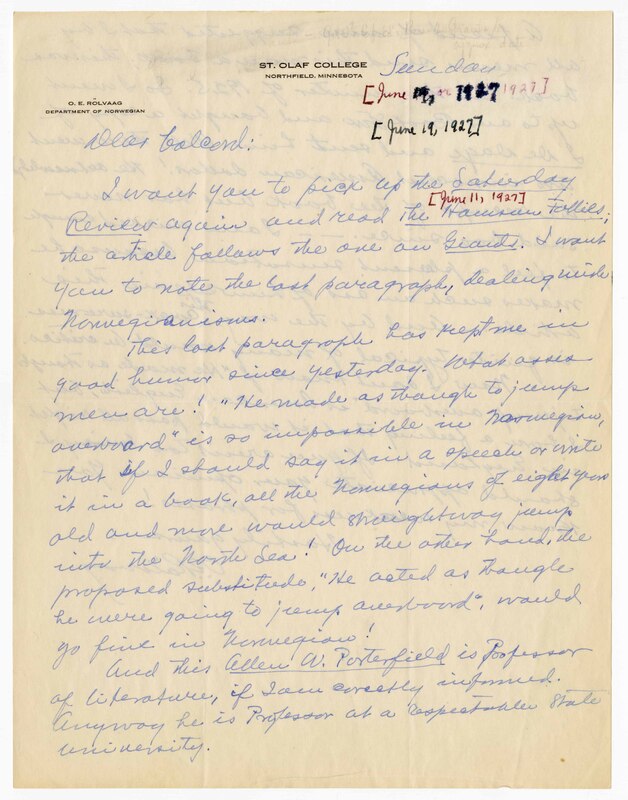 ST. OLAF COLLEGE
NORTHFIELD, MINNESOTA
Sunday
[June or 1927 1927]
O. E. ROLVAAG
DEPARTMENT OF NORWEGIAN
[June 19, 1927]
Dear Colcord:
I want you to pick up the Saturday
[June 11, 1927]
Review again and read The Hamsun Follies;
the article follows the one on Giants. I want
you to note the last paragraph, dealing with
Norwegianisms.
This last paragraph has kept me in
good humor since yesterday. What asses
men are! "He made as though to jump
overboard" is so impossible in Norwegian,
that if I should say it in a speech or write
it in a book, all the Norwegians of eight years
old and more would straightway jump
into the North Sea! On the other hand, the
proposed substitude, "He acted as though
he were going to jump overboard", would
go fine in Norwegian!
And this Allen W. Porterfield is Professor
of literature, if I am corectly informed.
Anyway he is Professor at a respectable State
University.